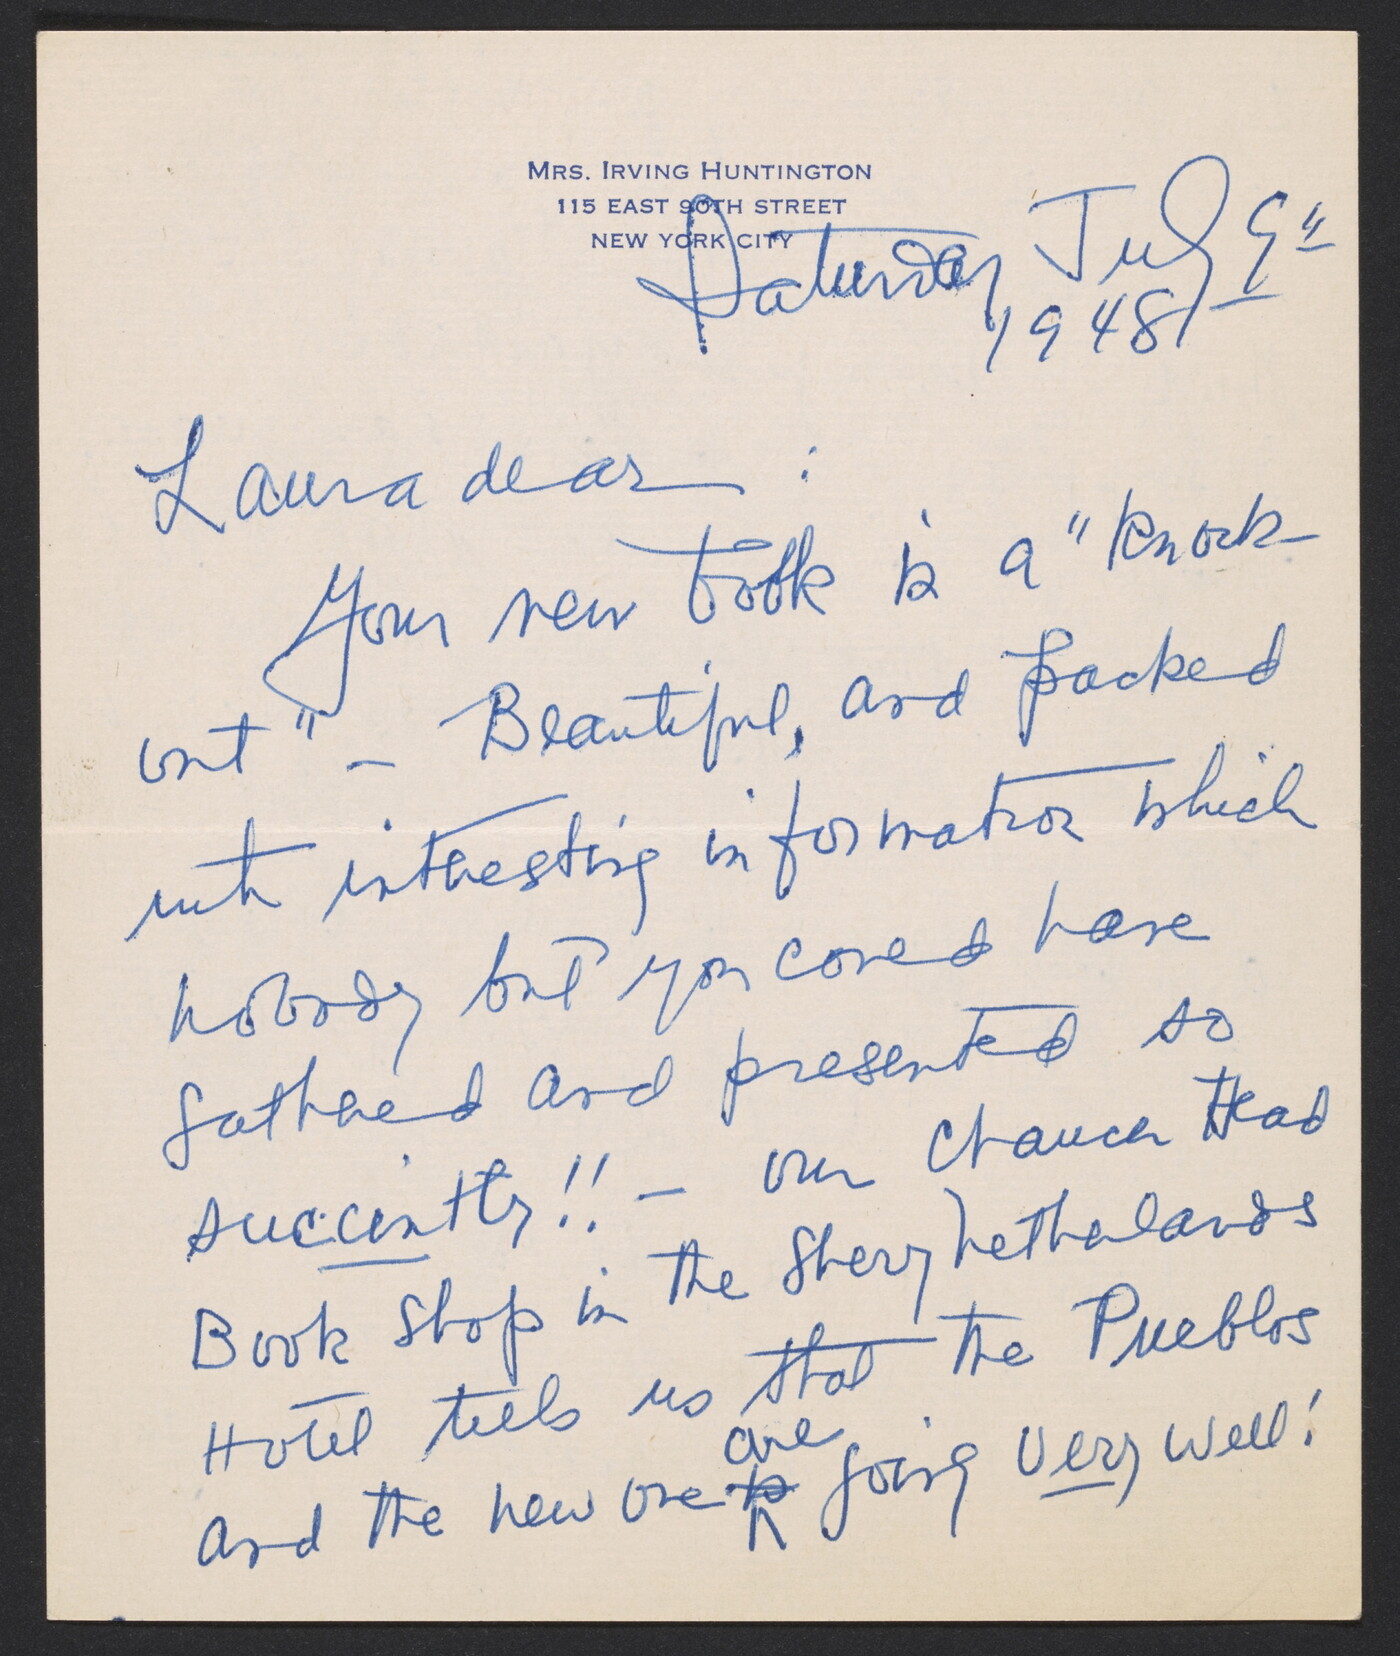 MRS. IRVING HUNTINGTON
115 EAST 90TH STREET
NEW YORK CITY
Saturday July 9"
1948
Laura dear :
Your new book is a "Knock
out" - Beautiful, and packed
with interesting information which
nobody but you coued have
gathered and presented so
succintly!! - our Chaucer Head
Book Shop in the Sherry Netherlands
Hotel tells us that the Pueblos
and the new one are going very well!